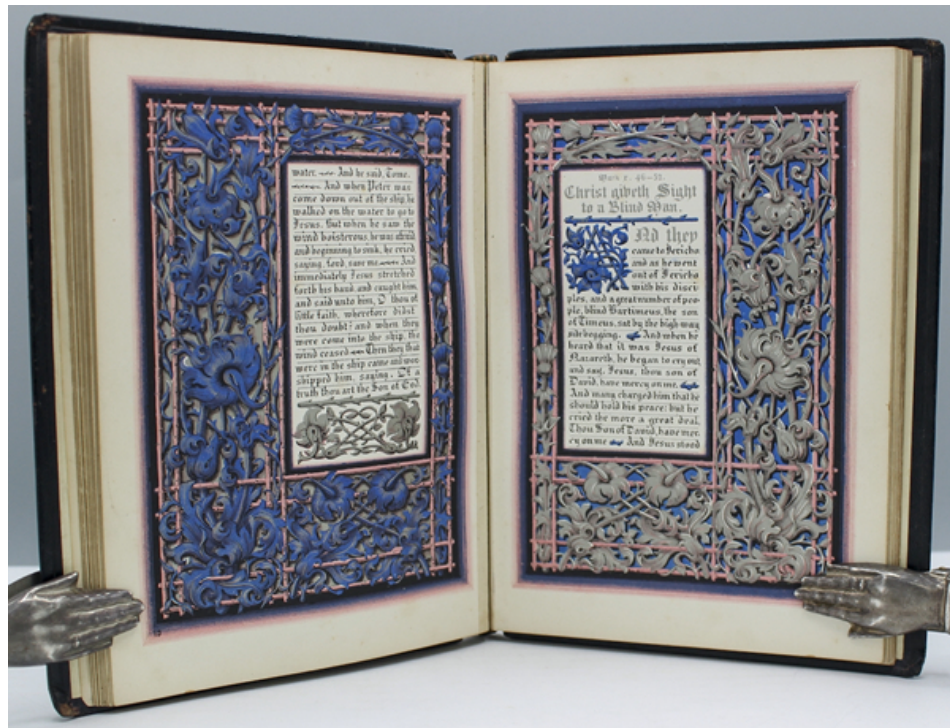 water. And he said, Come.
And when Peter was
come down out of the ship, he
walked on the water to go to
Jesus. But when he saw the
wind boisterous, he was afraid
and beginning to sink, he cried
saying, Lord, save me. And
immediately Jesus stretched
forth his hand, and caught him,
and said unto him, O thou of
little faith, wherefore didst
thou doubt? and when they
were come into the ship, the
wind ceased. Then they that
were in the ship came and wor
shipped him, saying, Of a
truth thou art the Son of God.
Mark x. 46–52.
Christ giveth Sight
to a Blind Man.
ANd they
came to Jericho
and as he went
out of Jericho
with his disci
ples, and a great number of peo-
ple, blind Bartimeus, the son
of Timeus, sat by the high-way
side begging. And when he
heard that it was Jesus of
Nazareth, he began to cry out
and say, Jesus, thou son of
David, have mercy on me.
And many charged him that he
should hold his peace: but he
cried the more a great deal,
Thou Son of David, have mer-
cy on me. And Jesus stood